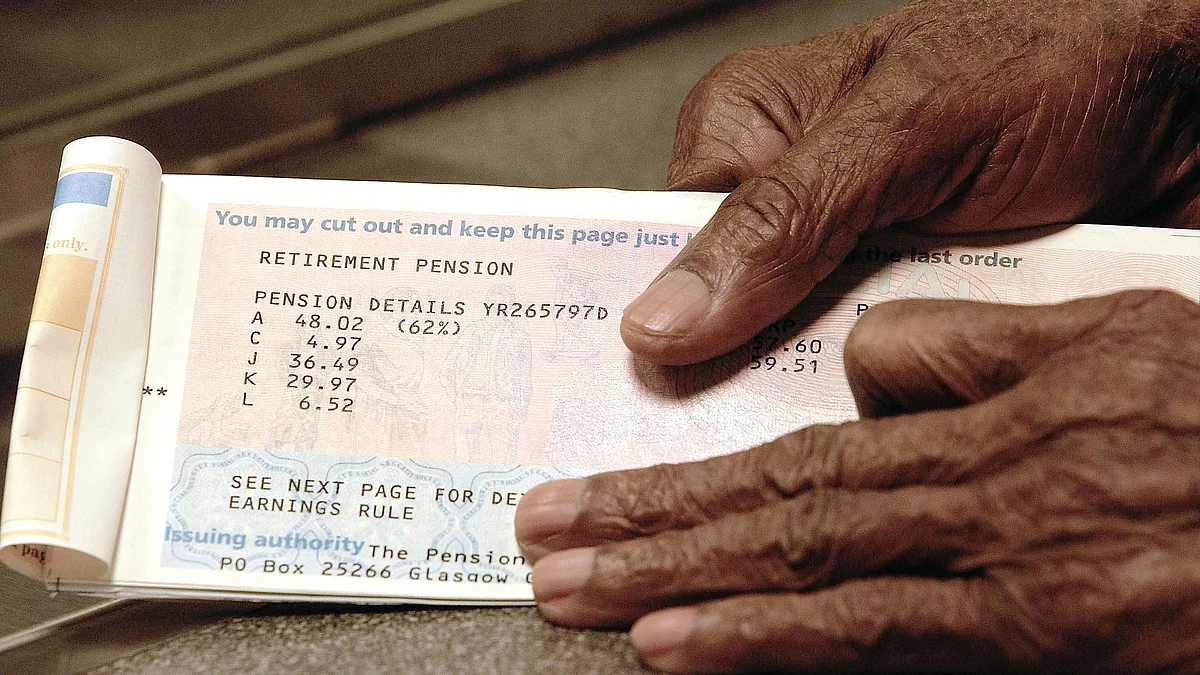 only.
You may cut out and keep this page just
the last order
RETIREMENT PENSION
PENSION DETAILS YR265797D
A 48.02 (62%)
C 4.97
57.60
J 36.49
59.51
K 29.97
L 6.52
**
SEE NEXT PAGE FOR
EARNINGS RULE
Issuing authority The Pension
PO Box 25266 Glasgow